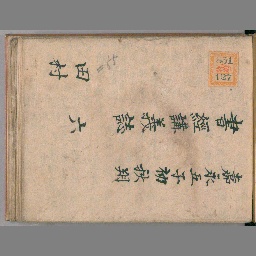 嘉永五子初秋朔
書經講義誌 六
田村